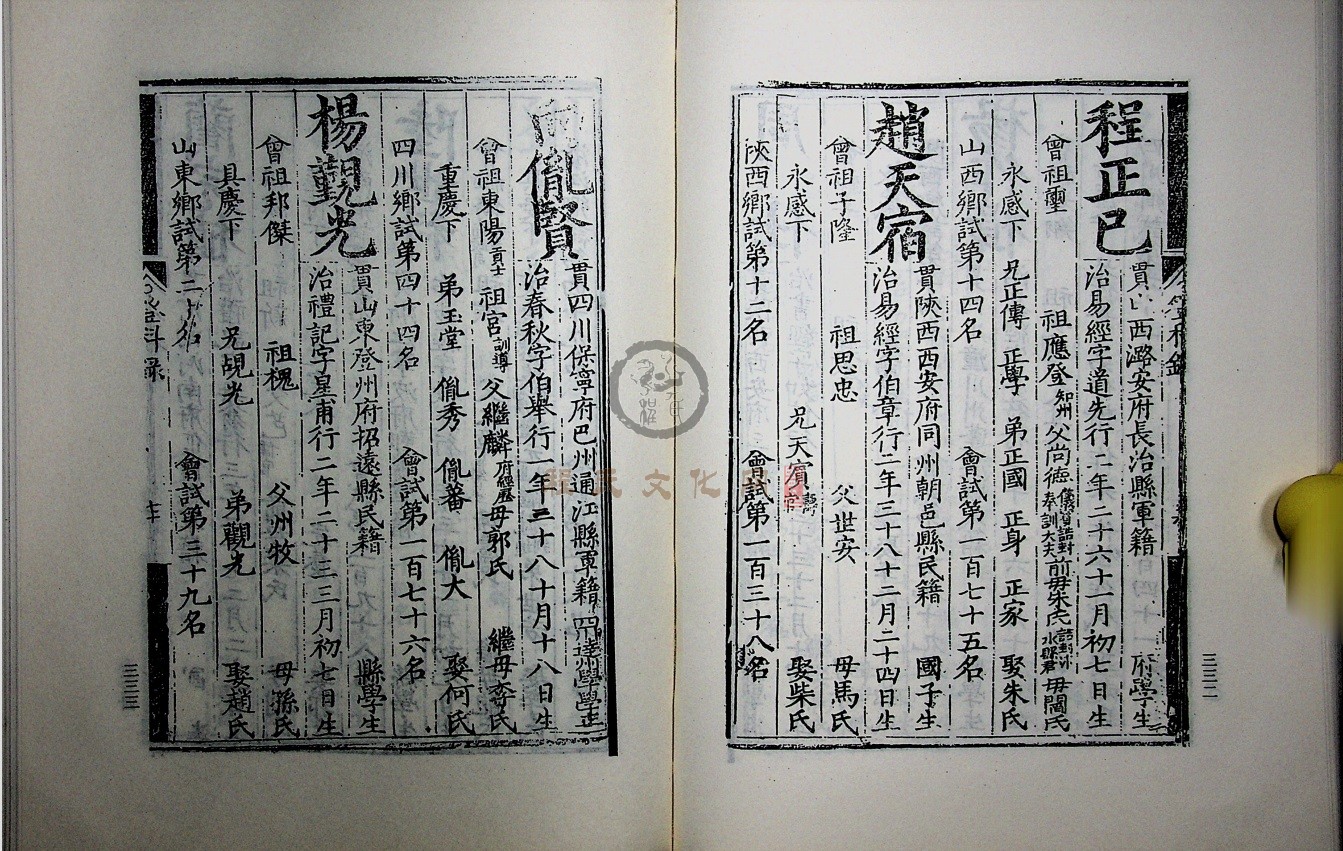 程正己
貫 西潞安府長治縣軍籍 府學生
治易經字道先行二年二十六十一月初七日生
曾祖璽 祖應登知州 父尚德儀賓誥封奉訓大夫 前母朱氏 母閻氏
永感下 兄正傳 正學 弟正國 正身 正家 娶朱氏
山西鄉試第十四名 會試第一百七十五名
趙天宿
貫陝西西安府同州朝邑縣民籍 國子生
治易經字伯章行二年三十八十二月二十四日生
曾祖子隆 祖思忠 父世安 母馬氏
永感下 兄天賓壽官 娶柴氏
陝西鄉試第十二名 會試第一百三十八名
三三二
向胤賢
貫四川保寧府巴州通江縣軍籍 達州學學正
治春秋字伯舉行一年三十八十月十八日生
曾祖東陽貢士 祖官訓導 父繼麟府經歷 母郭氏 繼母李氏
重慶下 弟玉堂 胤秀 胤蕃 胤大 娶何氏
四川鄉試第四十四名 會試第一百七十六名
楊觀光
貫山東登州府招遠縣民籍 縣學生
治禮記字星甫行二年二十三三月初七日生
曾祖邦傑 祖槐 父州牧 母孫氏
具慶下 兄覘光 弟觀光 娶趙氏
山東鄉試第二十名 會試第三十九名
登科錄
三三三
程氏文化